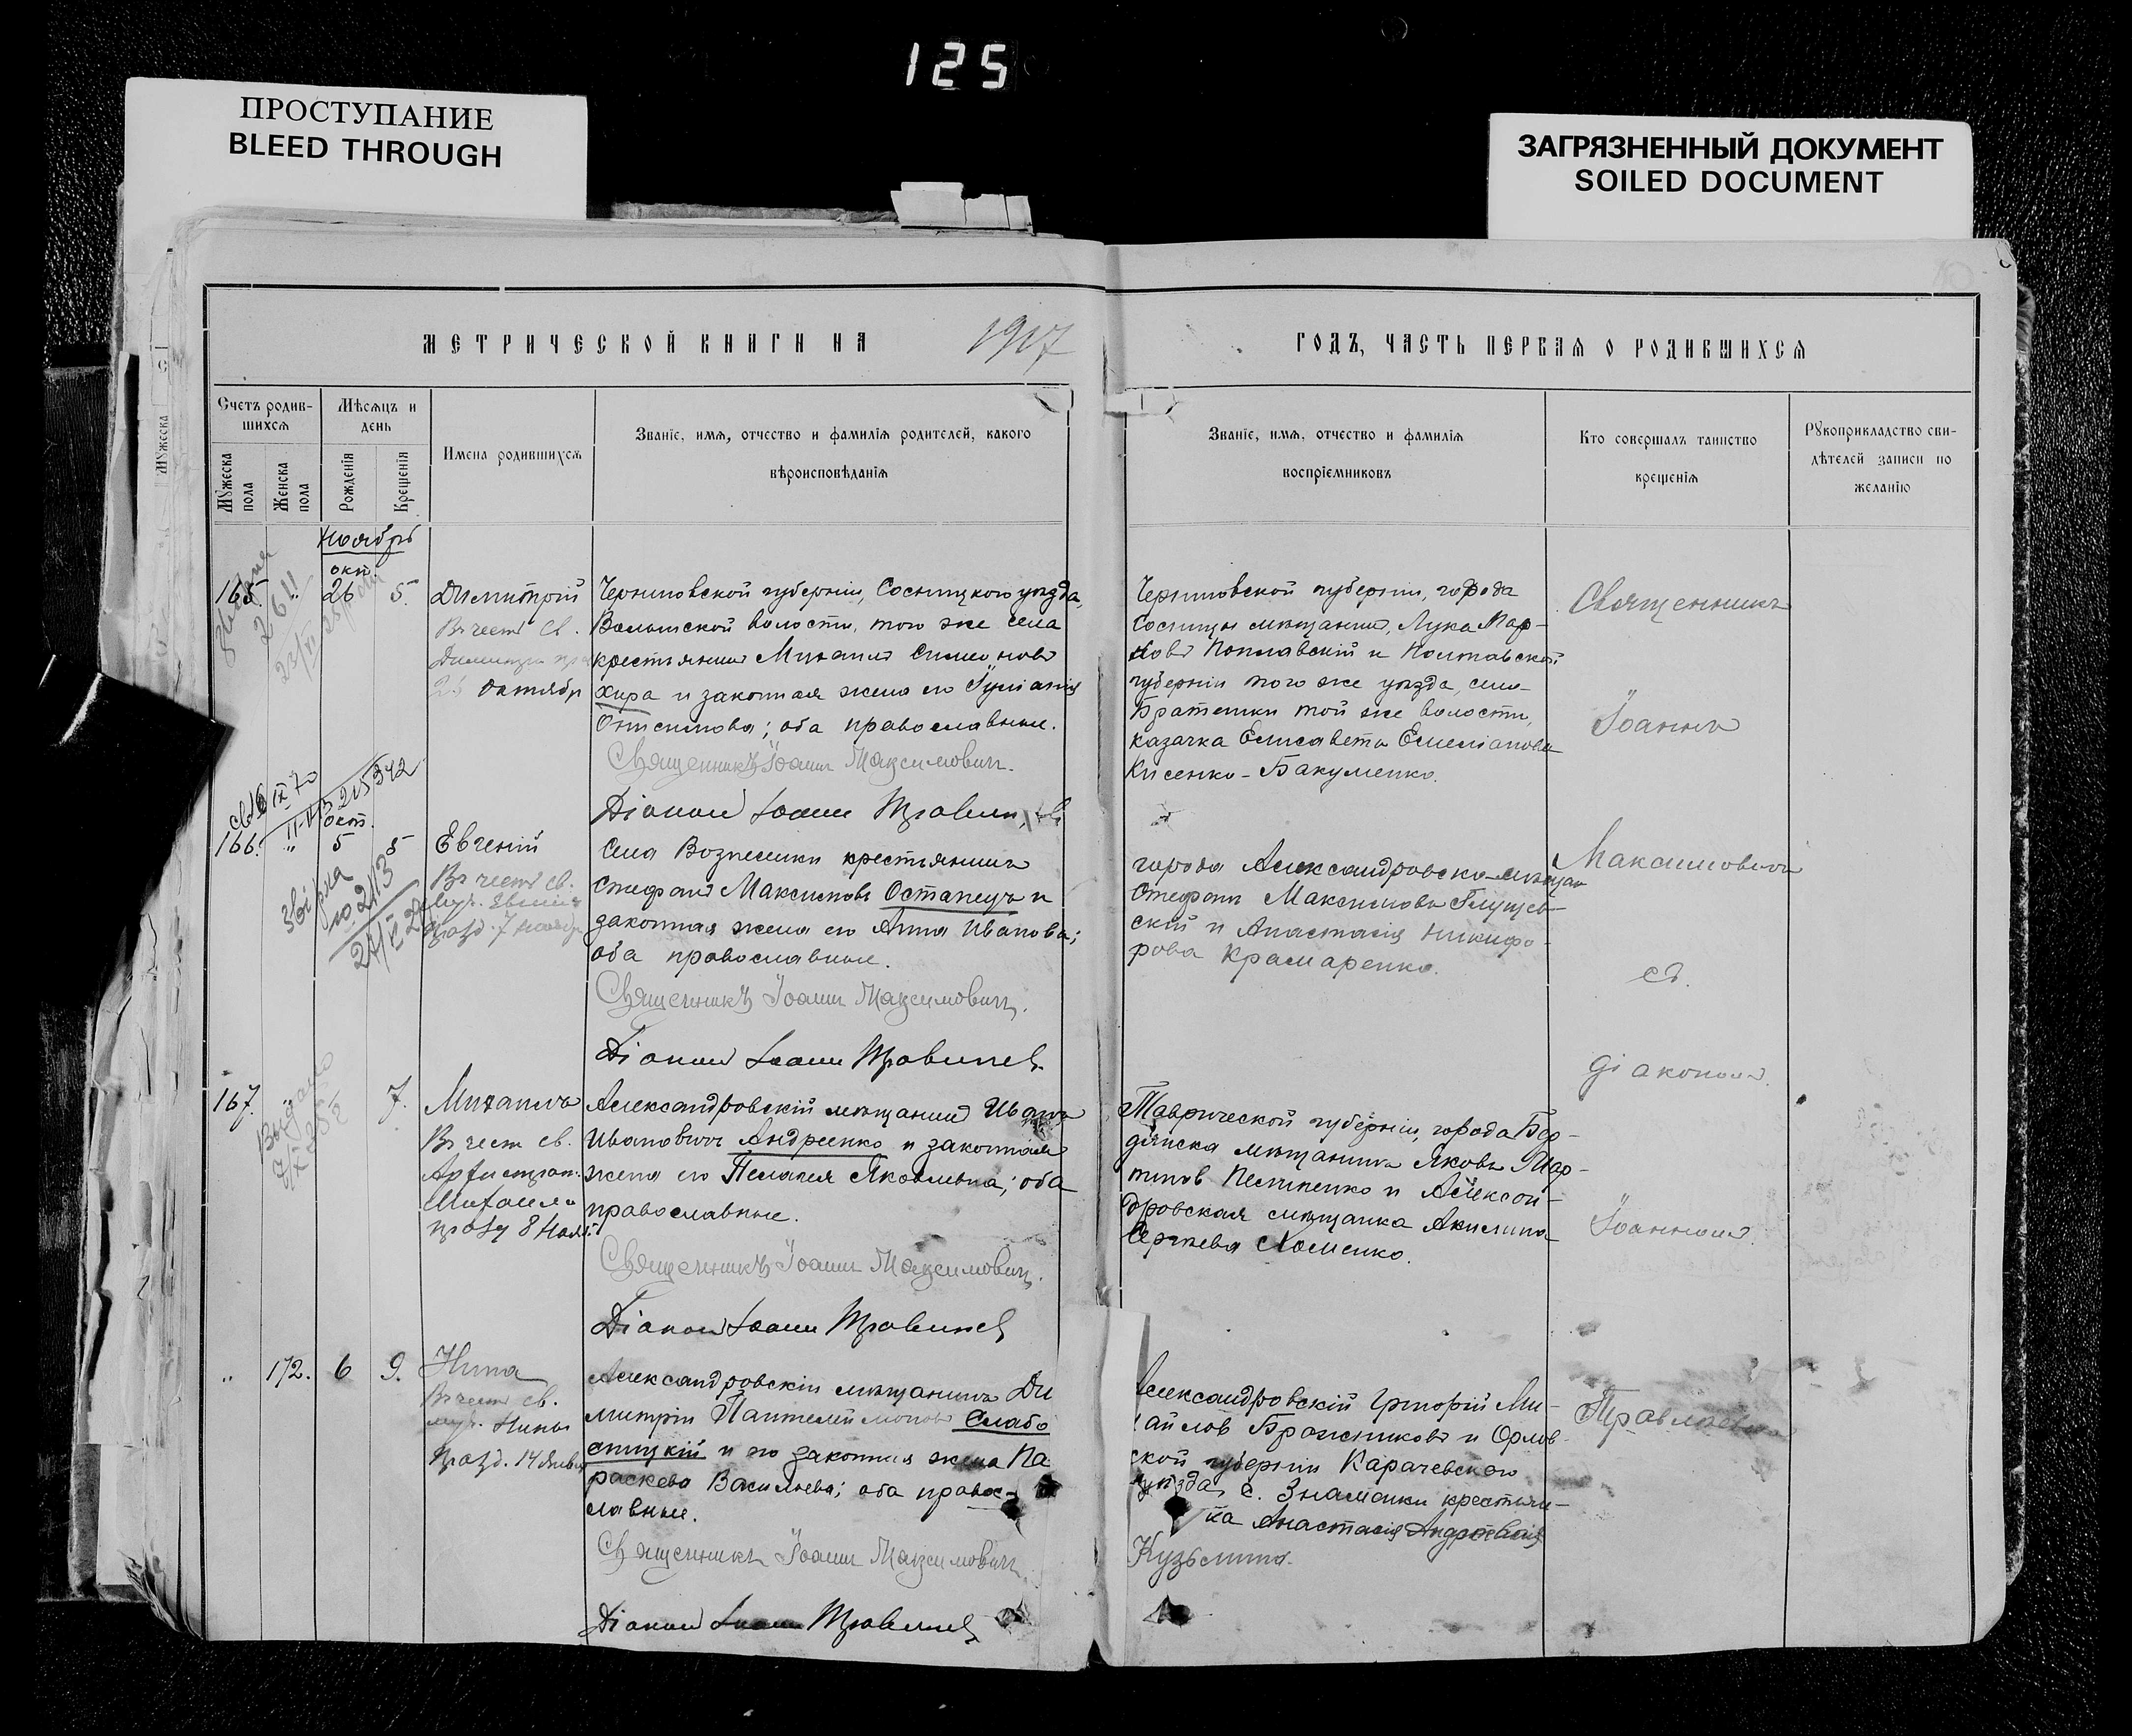 125
ПРОСТУПАНИЕ
BLEED THROUGH
ЗАГРЯЗНЕННЫЙ ДОКУМЕНТ
SOILED DOCUMENT
МЕТРИЧЕСКОЙ КНИГИ НА 1917
ГОДЪ, ЧАСТЬ ПЕРВАЯ О РОДИВШИХСЯ
Счетъ родив-
шихся
Мужеска
пола
Женска
пола
Мѣсяцъ и
день
Рожденія
Крещенія
Имена родившихся
Званіе, имя, отчество и фамилія родителей, какого
вѣроисповѣданія
Званіе, имя, отчество и фамилія
воспріемниковъ
Кто совершалъ таинство
крещенія
Рукоприкладство сви-
дѣтелей записи по
желанію
Ноябрь
окт.
165. " 26 5.
Димитрій
Въ честь Св.
26 Октября
Черниговской губерніи, Сосницкого уѣзда,
волости, того же села
крестьянинъ Михаилъ Симеоновъ
Хира и законная жена его Іуліанія
Онисимова; оба православные.
Священникъ Іоаннъ Максимовичъ.
Діаконъ Іоаннъ
Черниговской губерніи, города
Сосницы мѣщанинъ, Лука Мар-
ковъ Поплавскій и Полтавской
губерніи того же уѣзда, села
Братешки той же волости,
казачка Елисавета Емеліанова
Кисенко-Бакуменко.
Священникъ
Іоаннъ
Максимовичъ
съ
діакономъ
Іоанномъ
окт.
166. " 5 5
Евгеній
Въ честь св.
муч. Евгенія
празд. 7 ноябр.
Села Вознесенки крестьянинъ
Стефанъ Максимовъ Остапецъ и
законная жена его Анна Иванова;
оба православные.
Священникъ Іоаннъ Максимовичъ.
Діаконъ Іоаннъ
города Александровска мѣщан
Стефанъ Максимовъ Глущев-
скій и Анастасія Никифо-
рова Крамаренко.
167. 7.
Михаилъ
Въ честь св.
Архистрат.
Михаила
празд 8 Нояб.
Александровскій мѣщанинъ Иванъ
Ивановичъ Андреенко и законная
жена его Пелагея Яковлевна; оба
православные.
Священникъ Іоаннъ Максимовичъ.
Діаконъ Іоаннъ
Таврической губерніи, города Бер-
дянска мѣщанинъ Яковъ Мар-
тиновъ и Алексан-
дровская мѣщанка Акилина
Сергѣева Хоменко.
" 172. 6 9.
Нина
Въ честь св.
Нины
празд. 14 Января
Александровскій мѣщанинъ Ди
митрій Пантелеимоновъ Слабо
спицкій и его законная жена Па
раскева Васильева; оба правос-
лавные.
Священникъ Іоаннъ Максимовичъ.
Діаконъ Іоаннъ
Александровскій Григорій Ми-
хайлов Бражниковъ и Орлов-
ской губерніи Карачевского
уѣзда, с. Знаменки крестьян-
ка Анастасія Андреева
Кузьмина.